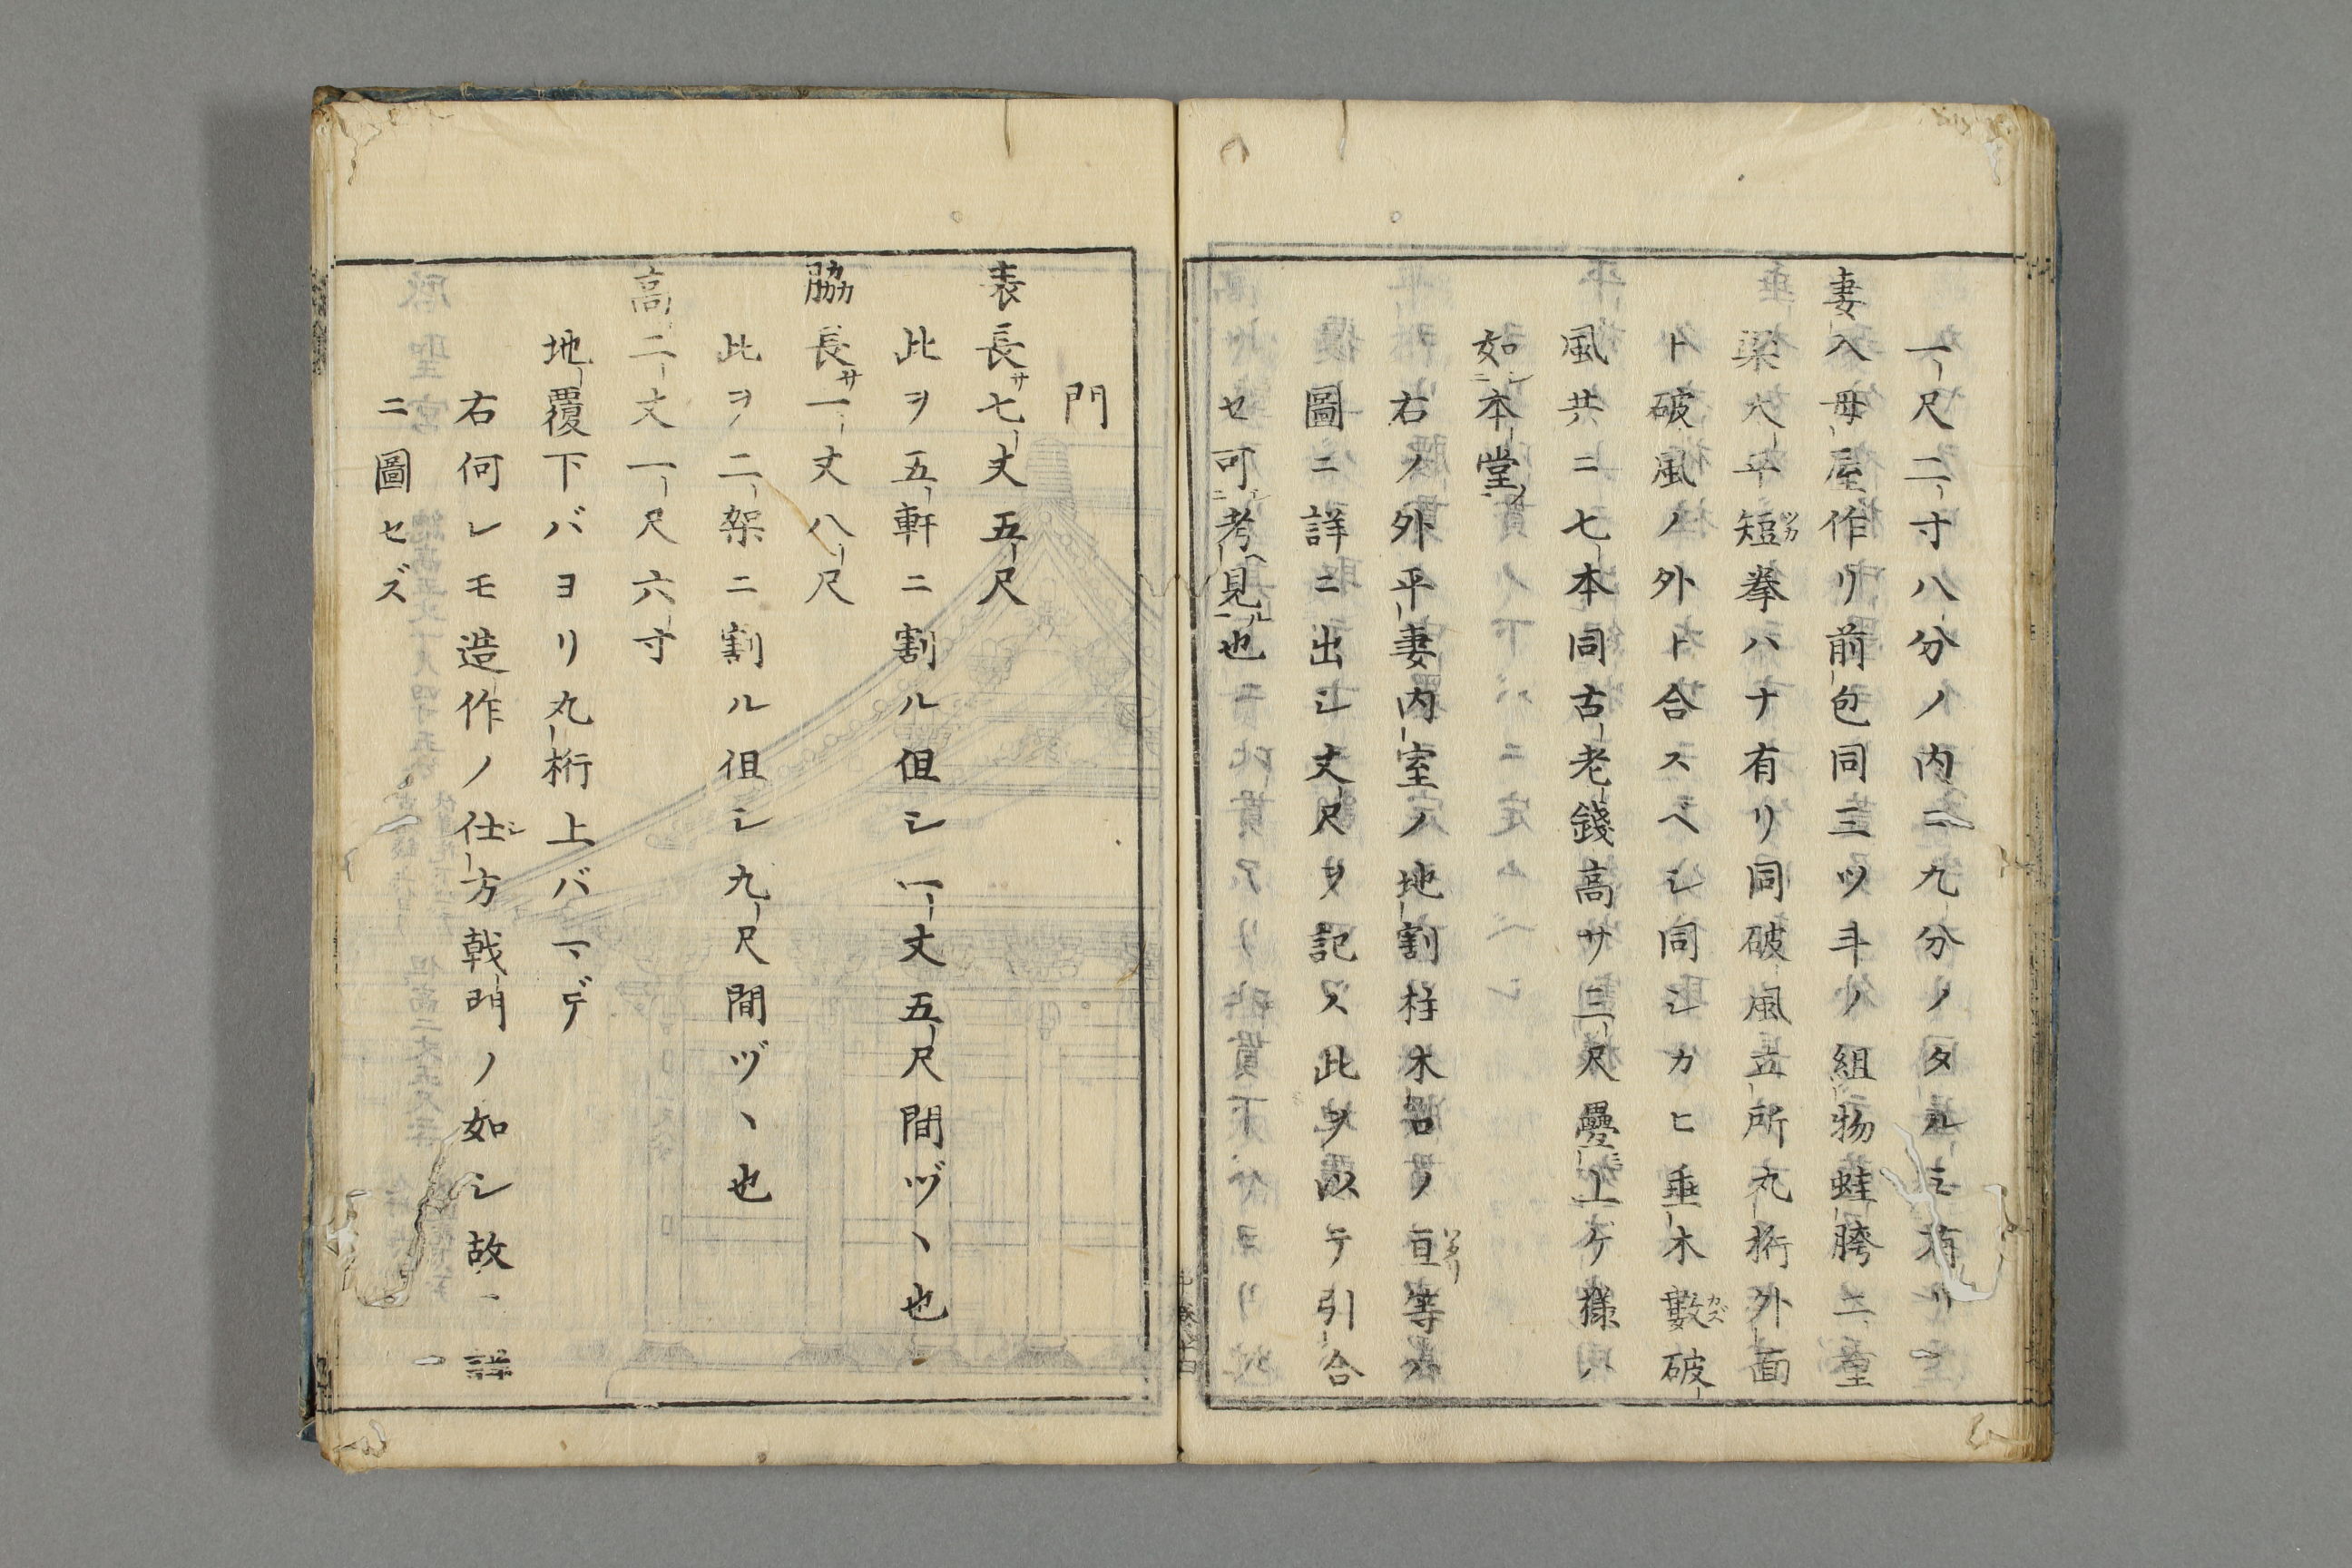 一尺二寸八分ノ内ニ九分ノタルミ有リ
妻入母屋作リ前包同三ツ斗ノ組物蛙胯二重
梁大平短拳ハナ有リ同破風立所丸桁外面
ト破風ノ外ト合スベシ同シカヒ垂木數破
風共ニ七本同古老錢高サ三尺疊上ケ様ハ
如本堂
右ノ外平妻内室ノ地割柱木口ノ亘等ハ
圖ニ詳ニ出シ丈尺ヲ記ス此ヲ以テ引合
セ可考見也
門
表長サ七丈五尺
此ヲ五軒ニ割ル但シ一丈五尺間ヅヽ也
脇長サ一丈八尺
此ヲ二架ニ割ル但シ九尺間ヅヽ也
高二丈一尺六寸
地覆下バヨリ丸桁上バマデ
右何レモ造作ノ仕方戟門ノ如シ故ニ詳
ニ圖セズ